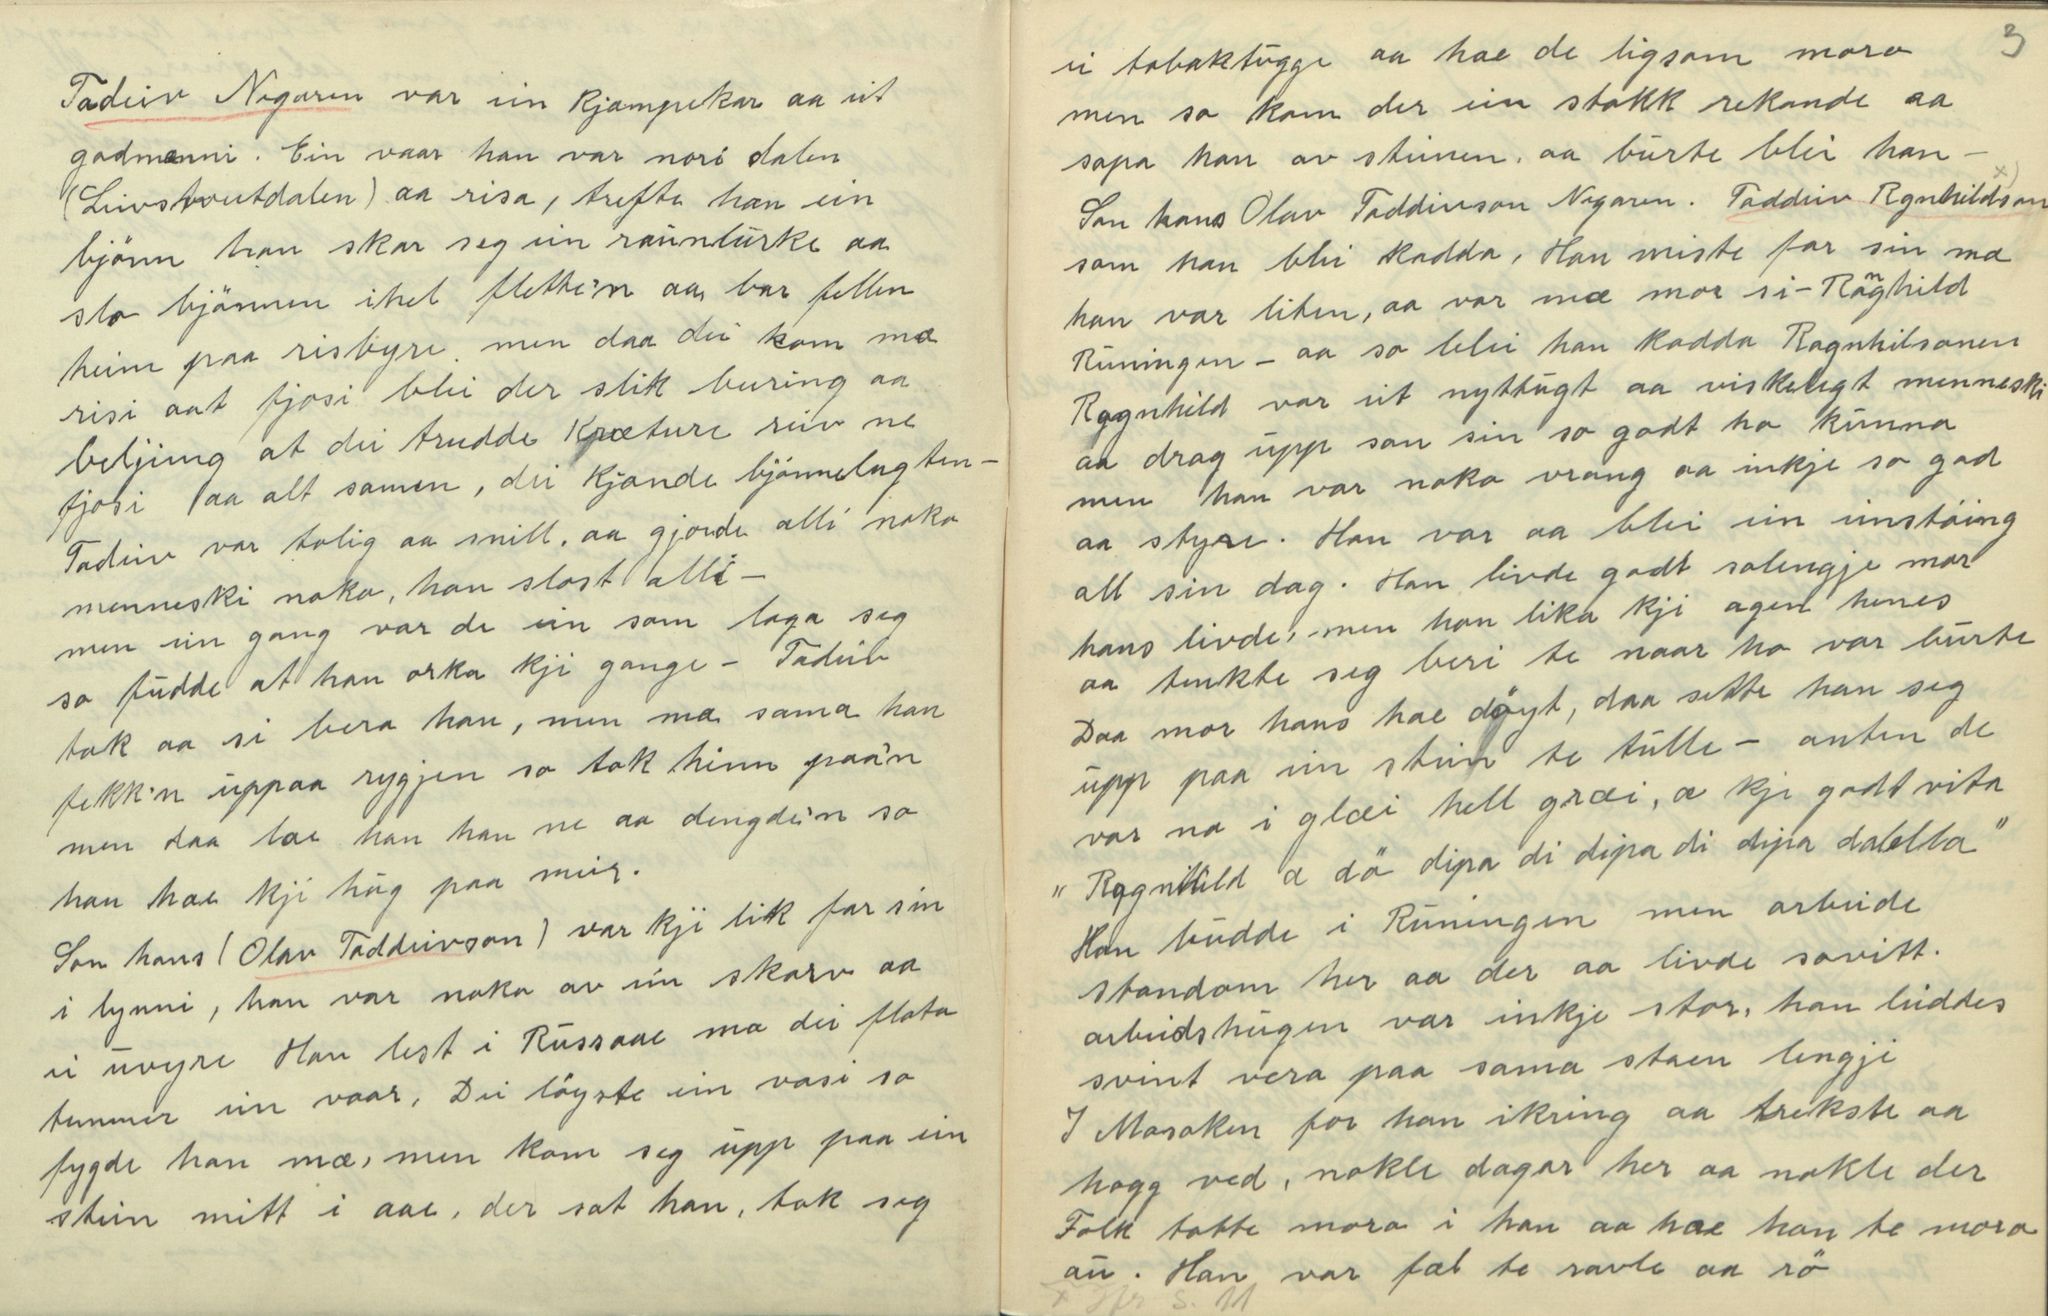 Tadeiv Negaren var ein kjampekar aa eit
godmenni. Ein vaar han var nori dalen
(Leivstoutdalen) aa risa, trefte han ein
bjönn han skar seg ein raunlurke aa
slo bjönnen ihel flette'n aa bar fellen
heim paa risbyre. men daa dei kom mæ
risi aat fjosi blei der slik buring aa
beljing at dei trudde kræture reiv ne
fjosi aa alt samen, dei kjende bjönnelugten -
Tadeiv var tolig aa snill. aa gjorde alli noko
menneski noko, han slost alli -
men ein gang var de ein som laga seg
so fudde at han orka kji gange - Tadeiv
tok aa si bera han, men mæ sama han
fekk'n uppaa rygjen so tok hinn paa'n
men daa læe han han ne aa dengde'n so
han hæe kji hug paa meir.
Son hans (Olav Taddeivson) var kji lik far sin
i lynni, han var noko av ein skarv aa
ei uvyre Han lest i Russaae mæ dei flota
tummer ein vaar, Dei löyste ein vasi so
fygde han mæ, men kom seg upp paa ein
stein mitt i aae, der sat han, tok seg
3
ei tobaktugge aa hae de ligsom moro
men so kom der ein stokk rekande aa
sopa han av steinen. aa burte blei han -
Son hans Olav Taddeivson Negaren. Taddeiv Rgnhildson x)
som han blei kadda, Han miste far sin mæ
han var liten, aa var mæ mor si - Ranghild
Runingen - aa so blei han kadda Ragnhilsonen
Ragnhild var eit nyttugt aa viskelegt menneski
aa drog upp son sin so godt ho kunna
men han var noko vrang aa inkje so god
aa styre. Han var aa blei ein einstöing
all sin dag. Han livde godt solengje mor
hans livde, men han lika kji agen henes
aa tenkte seg beri te naar ho var burte
Daa mor hans hae döyt, daa sette han seg
upp paa ein stein te tulle - anten de
var na i glæi hell græi, æ kje godt vita
"Ragnhild æ dö dipa di dipa di dipa dalella"
Han budde i Runingen men arbeide
stondom her aa der aa livde sovitt.
arbeidshugen var inkje stor, han leiddes
svint vera paa sama staen lengji
I Mosoken for han ikring aa trekste aa
hogg ved, nokle dagar her aa nokle der
Folk totte moro i han aa hae han te moro
au. Han var fæl te ravle aa rö
x Jfr s. 11